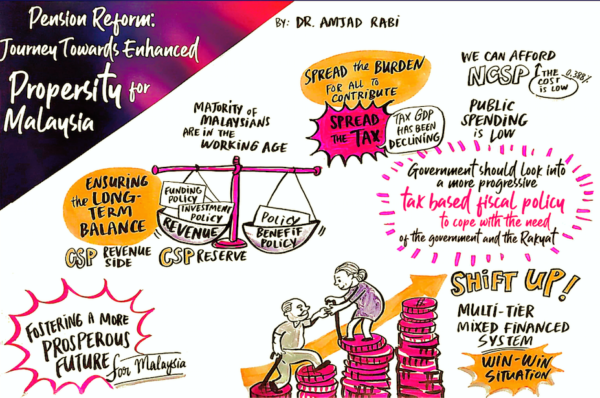 Pension Reform:
Journey Towards Enhanced
Propersity for
Malaysia
BY: DR. AMJAD RABi
SPREAD the BURDEN
FOR ALL TO
CONTRIBUTE
SPREAD
THE TAX
TAX GDP
HAS BEEN
DECLINING
WE CAN AFFORD
NCSP
THE COST
IS LOW
0.388%
PUBLIC
SPENDING
iS LOW
MAJORITY OF
MALAYSIANS
ARE IN THE
WORKING AGE
ENSURING
the LONG-
TERM
BALANCE
FUNDING
POLICY
INVESTMENT
POLICY
REVENUE
POLICY
BENEFIT
POLICY
CSP REVENUE
SIDE
CSP RESERVE
Government should look into
a more progressive
tax based fiscal policy
to cope with the need
of the government and the Rakyat
SHiFT UP!
MULTI-TIER
MIXED FINANCED
SYSTEM
WIN-WIN
SITUATION
FOSTERING A MORE
PROSPEROUS
FUTURE
for Malaysia